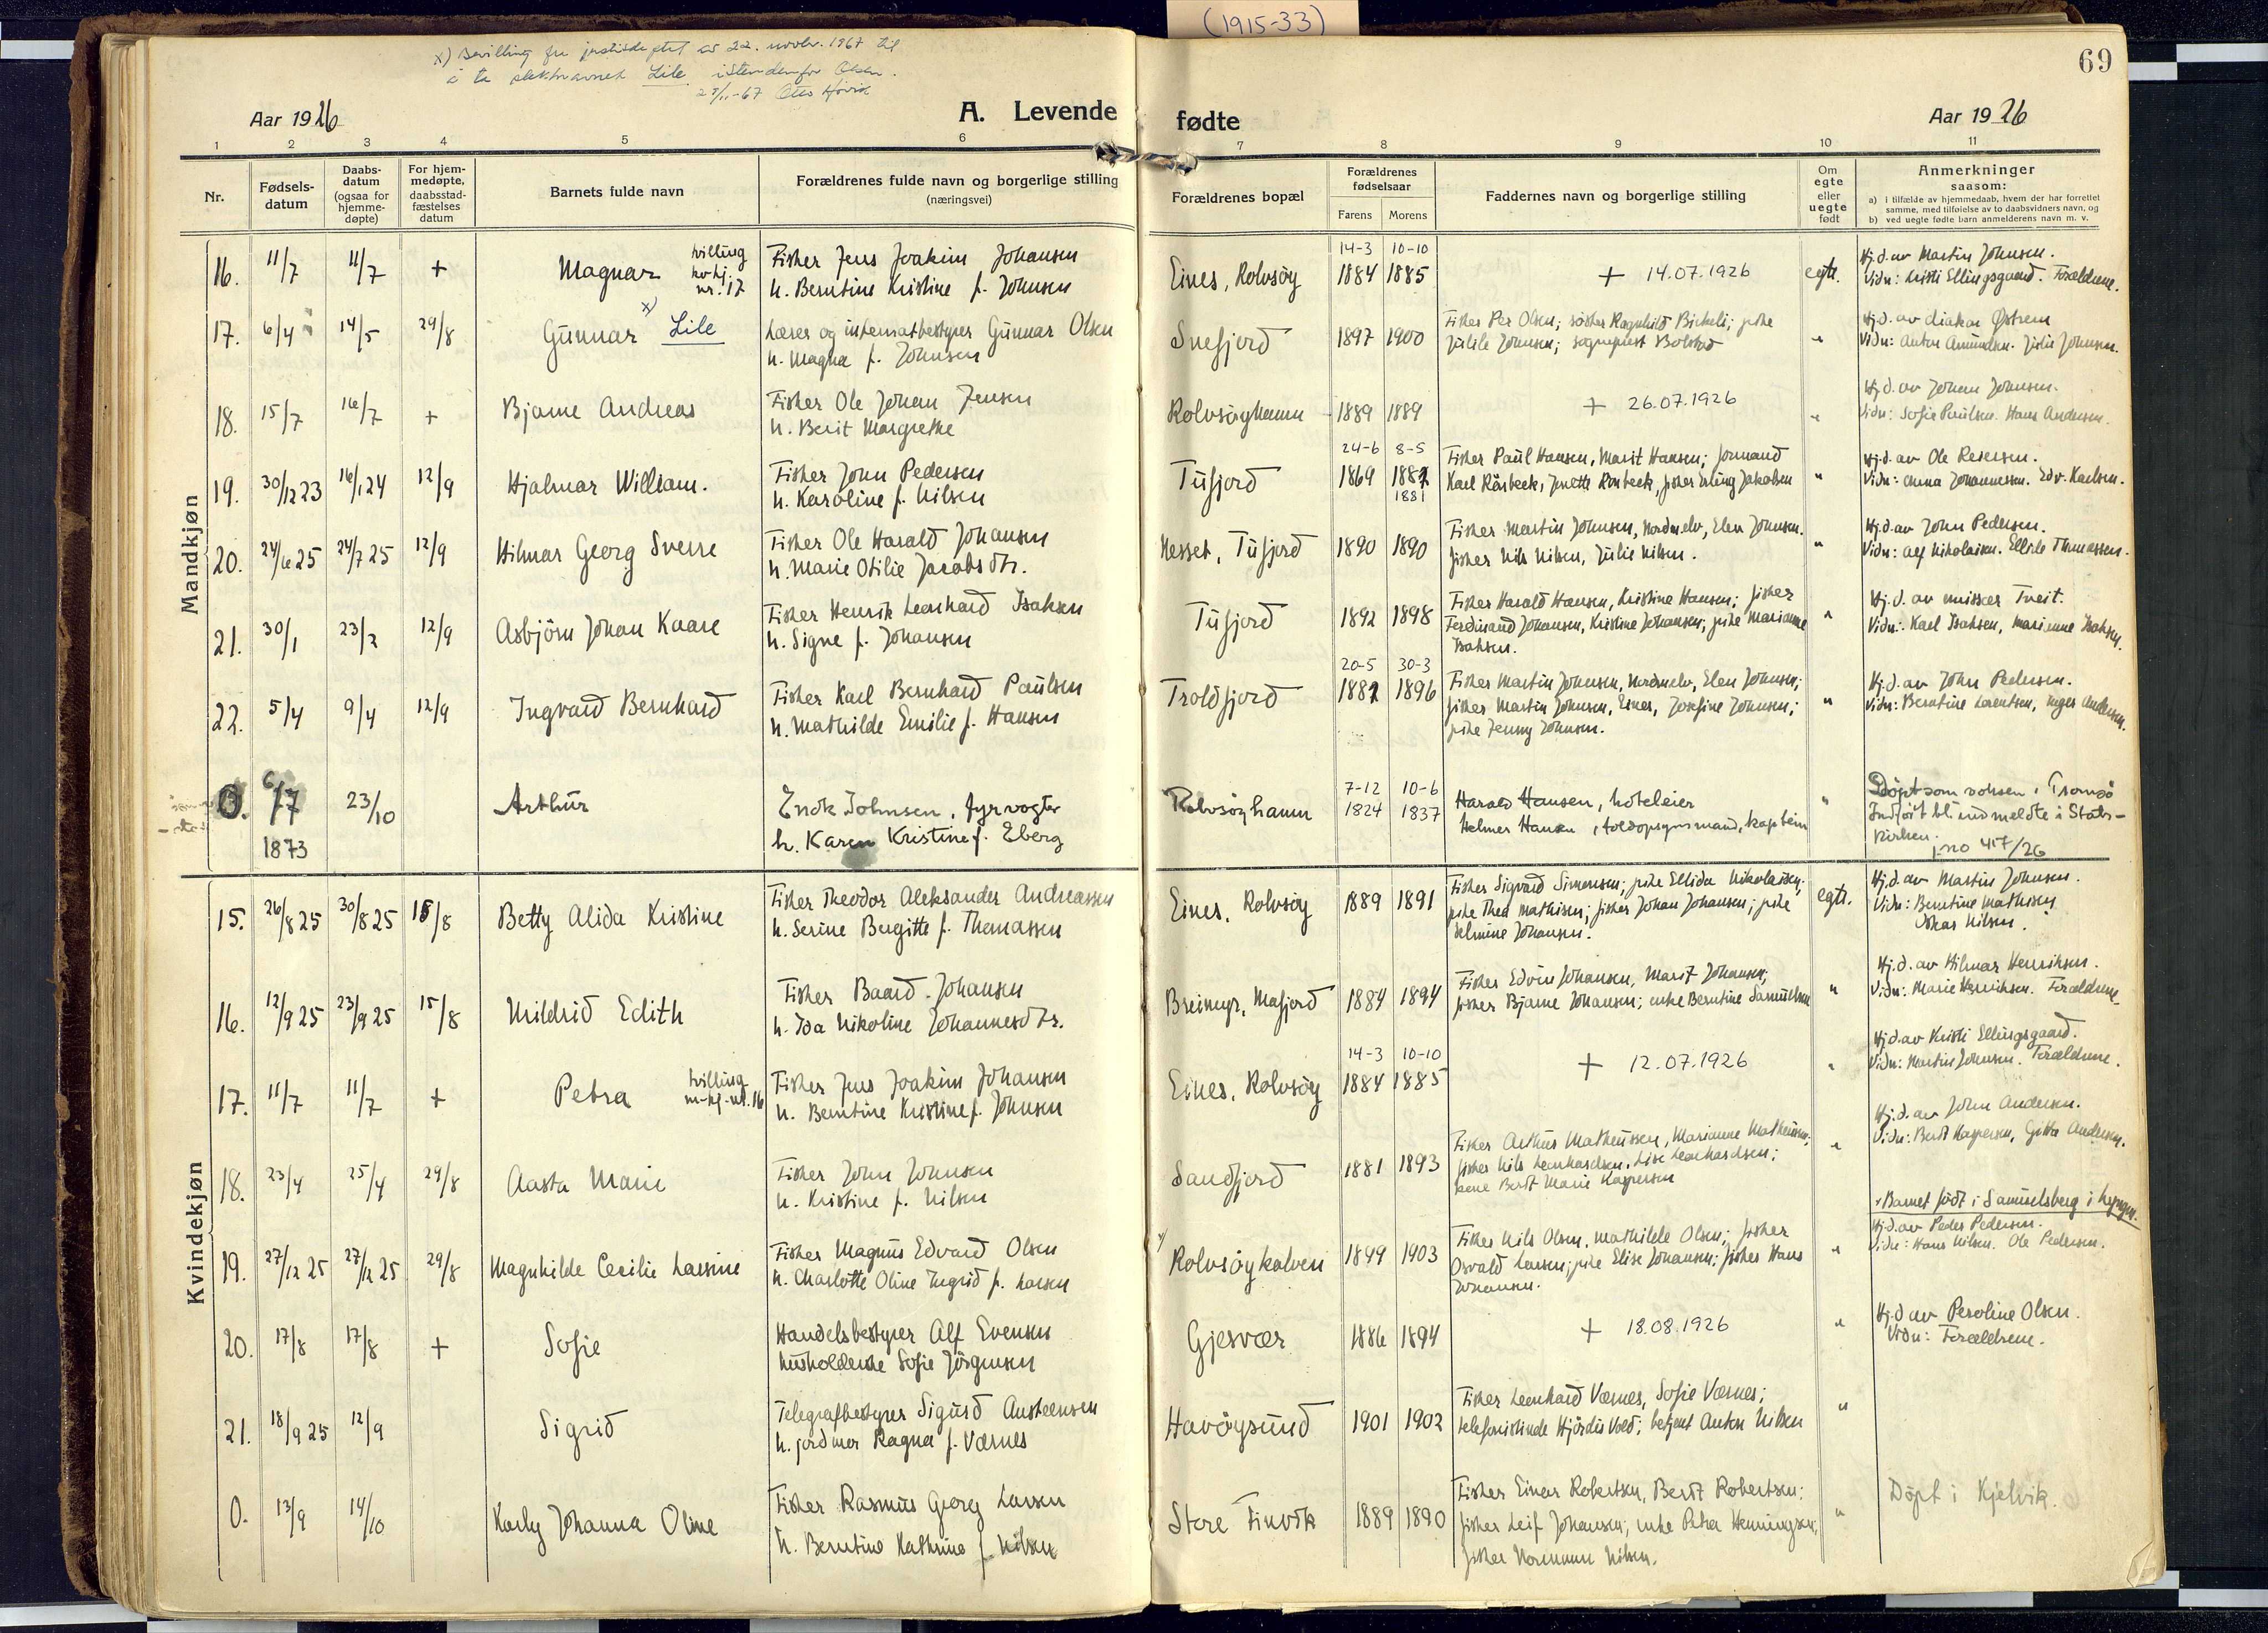 (1915-33)
x) Bevilling fra justisdeptet av 22. novbr. 1967 til
å ta slektsnavnet Lile istedenfor Olsen.
28/11-67 Otto Høvik
69
Aar 1926
A. Levende
fødte
Aar 1926
1 2 3 4 5 6 7 8 9 10 11
Nr.
Fødsels-
datum
Daabs-
datum
(ogsaa for
hjemme-
døpte)
For hjem-
medøpte,
daabsstad-
fæstelses
datum
Barnets fulde navn
Forældrenes fulde navn og borgerlige stilling
(næringsvei)
Forældrenes bopæl
Forældrenes
fødselsaar
Farens Morens
Faddernes navn og borgerlige stilling
Om
egte
eller
uegte
født
Anmerkninger
saasom:
a) i tilfælde av hjemmedaab, hvem der har forrettet
samme, med tilføielse av to daabsvidners navn, og
b) ved uegte fødte barn anmelderens navn m. v.
Mandkjøn
16. 11/7 11/7 + Magnar tvilling
kv.kj.
nr. 17
Fisker Jens Joakim Johansen
h. Berntine Kristine f. Johnsen
Eines, Rolvsøy
14-3 10-10
1884 1885
+ 14.07.1926
egte.
Hj.d. av Martin Johnsen.
Vidn: Kristi Ellingsgaard. Forældrene.
17. 6/4 14/5 29/8 Gunnar x) Lile
Lærer og internatbestyrer Gunnar Olsen
h. Magna f. Johnsen
Snefjord
1897 1900
Fisker Per Olsen; søster Ragnhild Birkeli; pike
Julile Johnsen; sogneprest Bolstad
"
Hj.d. av diakon Østrem
Vidn: Anton Amundsen. Julie Johnsen.
18. 15/7 16/7 + Bjarne Andreas
Fisker Ole Johan Jensen
h. Berit Margrethe
Rolvsøyhamn
1889 1889
+ 26.07.1926
"
Hj.d. av Johan Johnsen.
Vidn: Sofie Paulsen. Hans Andersen.
19. 30/12 23 16/1 24 12/9 Hjalmar William.
Fisker John Pedersen
h. Karoline f. Nilsen
Tufjord
24-6 8-5
1869 1887
1881
Fisker Paul Hansen, Marit Hansen; formand
Karl Rörbeck, Jenette Rörbeck, fisker Erling Jakobsen
"
Hj.d. av Ole Reiersen.
Vidn: Anna Johannessen. Edv. Karlsen.
20. 24/6 25 24/7 25 12/9 Hilmar Georg Sverre
Fisker Ole Harald Johansen
h. Marie Otilie Jacobsdtr.
Nesset, Tufjord
1890 1890
Fisker Martin Johnsen, Nordmelv, Elen Johnsen.
fisker Nils Nilsen, Julie Nilsen.
"
Hj.d. av John Pedersen.
Vidn: Alf Nikolaisen. Ellile Thomassen.
21. 30/1 23/2 12/9 Asbjörn Johan Kaare
Fisker Henrik Leonhard Isaksen
h. Signe f. Johansen
Tufjord
1892 1898
Fisker Harald Hansen, Kristine Hansen; fisker
Ferdinand Johansen, Kristine Johansen; pike Marianne
Isaksen.
"
Hj.d. av missær Tveit.
Vidn: Karl Isaksen, Marianne Isaksen.
22. 5/4 9/4 12/9 Ingvard Bernhard
Fisker Karl Bernhard Paulsen
h. Mathilde Emilie f. Hansen
Troldfjord
20-5 30-3
1887 1896
Fisker Martin Johnsen, Nordmelv, Elen Johnsen;
fisker Martin Johnsen, Eines, Josefine Johnsen;
pike Jenny Johnsen.
"
Hj.d. av John Pedersen.
Vidn: Berntine Lorentsen, Inger Andersen.
0. 6/7
1873
23/10
Arthur
Enok Johnsen, fyrvogter
h. Karen Kristine f. Eberg
Rolvsøyhamn
7-12 10-6
1824 1837
Harald Hansen, hoteleier
Helmer Hansen, toldopsynsmand, kaptein
"
Döpt som voksen i Tromsö
Indfört bl. indmeldte i Stats-
kirken.
j.no 417/26
Kvindekjøn
15. 26/8 25 30/8 25 15/8 Betty Alida Kristine
Fisker Theodor Aleksander Andreassen
h. Serine Bergitte f. Thomassen
Eines, Rolvsøy
1889 1891
Fisker Sigvard Simonsen; pike Ellida Nikolaisen;
pike Thea Mathisen; fisker Johan Johansen; pike
Helmine Johansen.
egte.
Hj.d. av Martin Johnsen.
Vidn: Berntine Mathisen
Oskar Nilsen.
16. 12/9 25 23/9 25 15/8 Mildrid Edith
Fisker Baard Johansen
h. Ida Nikoline Johannesdtr.
Breimyr, Mafjord
1884 1894
Fisker Edvin Johansen, Marit Johansen;
fisker Bjarne Johansen; enke Berntine Samuelsen
"
Hj.d. av Hilmar Henriksen.
Vidn: Marie Henriksen. Forældrene.
17. 11/7 11/7 + Petra tvilling
m-kj-nr. 16
Fisker Jens Joakim Johansen
h. Berntine Kristine f. Johnsen
Eines, Rolvsøy
14-3 10-10
1884 1885
+ 12.07.1926
"
Hj.d. av Kristi Ellingsgaard.
Vidn: Martin Johnsen. Forældrene.
18. 23/4 25/4 29/8 Aasta Marie
Fisker John Johnsen
h. Kristine f. Nilsen
Sandfjord
1881 1893
Fisker Arthur Matheussen, Marianne Matheussen;
fisker Nils Leonhardsen, Lise Leonhardsen;
kone Berit Marie Kaspersen
"
Hj.d. av John Andersen.
Vidn: Berit Kaspersen, Gitta Andersen.
19. 27/12 25 27/12 25 29/8 Magnhilde Cecilie Larsine
Fisker Magnus Edvard Olsen
h. Charlotte Oline Ingrid f. Larsen
x) Rolvsøykalven
1899 1903
Fisker Nils Olsen, Mathilde Olsen; fisker
Osvald Larsen; pike Elise Johansen; fisker Hans
Johansen.
"
x Barnet född i Samuelsberg i Lyngen.
Hj.d. av Peder Pedersen.
Vidn: Hans Nilsen. Ole Pedersen.
20. 17/8 17/8 + Sofie
Handelsbestyrer Alf Evensen
husholderske Sofie Jörgensen
Gjesvær
1886 1894
+ 18.08.1926
"
Hj.d. av Peroline Olsen.
Vidn: Forældrene.
21. 18/9 25 12/9 Sigrid
Telegrafbestyrer Sigurd Austeensen
h. jordmor Ragna f. Værnes
Havöysund
1901 1902
Fisker Leonhard Værnes, Sofie Værnes;
telefonistinde Hjördis Vold; betjent Anton Nilsen
"
0. 13/9 14/10 Karly Johanna Oline
Fisker Rasmus Georg Larsen
h. Berntine Kathrine f. Nilsen
Store Finvik
1889 1890
Fisker Einar Robertsen, Berit Robertsen;
fisker Leif Johansen; enke Petra Henningsen;
fisker Normann Nilsen.
"
Döpt i Kjelvik.